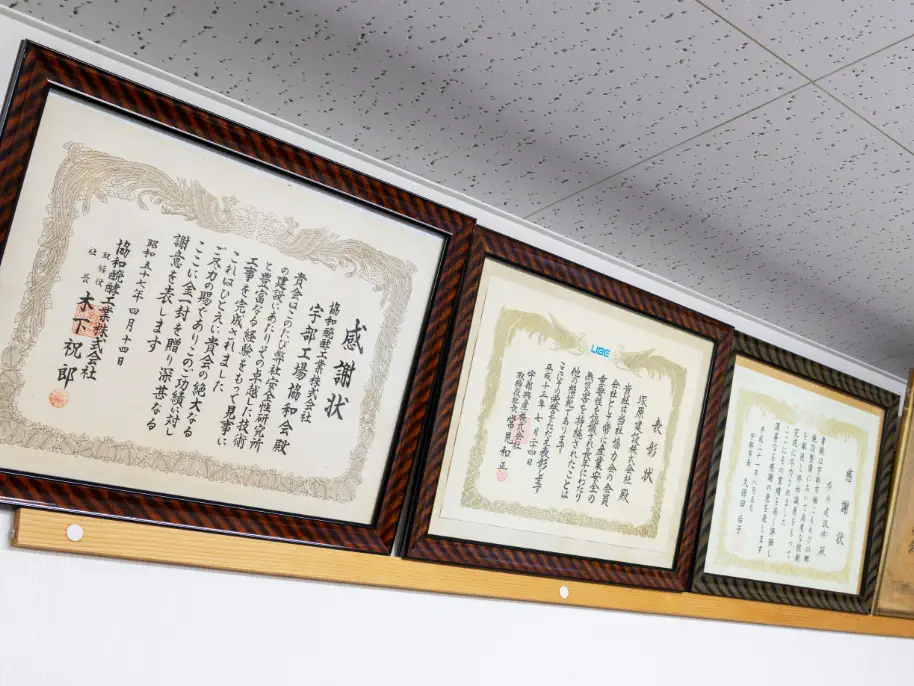 感謝状
協和醗酵工業株式会社
宇部工場協和会殿
貴会はこのたび弊社安全性研究所
の建設にあたりその卓越した技術
と豊富なる経験をもって見事に
工事を完成されました
これはひとえに貴会の絶大なる
ご尽力の賜でありこのご功績に対し
ここに金一封を贈り深甚なる
謝意を表します
昭和五十七年四月十四日
協和醗酵工業株式会社
取締役
社長
木下祝郎
UBE
表彰状
塚原建設株式会社 殿
貴社は当社協力会の会員
会社として常に産業安全の
重要性を認識され長年にわたり
無災害を持続されたことは
他の模範であります
ここにその栄誉をたたえ表彰します
平成十三年七月二十四日
宇部興産株式会社
取締役社長 常見和正
感謝状
平成二十一年八月五日
宇部市長 久保田后子